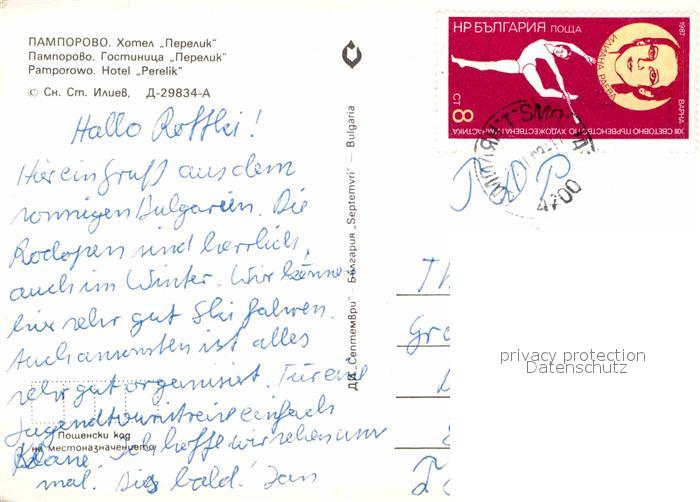 ПАМПОРОВО. Хотел „Перелик"
Пампорово. Гостиница „Перелик"
Pamporowo. Hotel „Perelik"
© Сн. Ст. Илиев, Д-29834-А
Hallo Roffki!
Hier ein Gruß aus dem
sonnigen Bulgarien. Die
Rodopen sind herrlich,
auch im Winter. Wir können
hier sehr gut Ski fahren.
Auch ansonsten ist alles
sehr gut organisiert. Für eine
Jugendtouristreise einfach
Klasse. Ich hoffe wir sehen uns
mal. Bis bald! Jan
Пощенски код
на местоназначението
ДИ „Септември" — България „Septemvri" — Bulgaria
НР БЪЛГАРИЯ ПОЩА
1987
ИЛИАНА РАЕВА
ВАРНА
СТ 8
XIII СВЕТОВНО ПЪРВЕНСТВО ПО ХУДОЖЕСТВЕНА ГИМНАСТИКА
4700
DDR
Th
Gr
privacy protection
Datenschutz